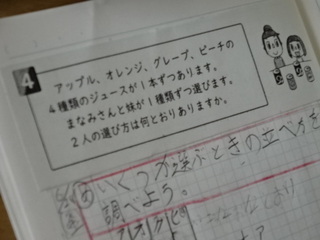 4
アップル、オレンジ、グレープ、ピーチの
4種類のジュースが1本ずつあります。
まなみさんと妹が1種類ずつ選びます。
2人の選び方は何とおりありますか。
いくつか選ぶときの立べ方を
調べよう。